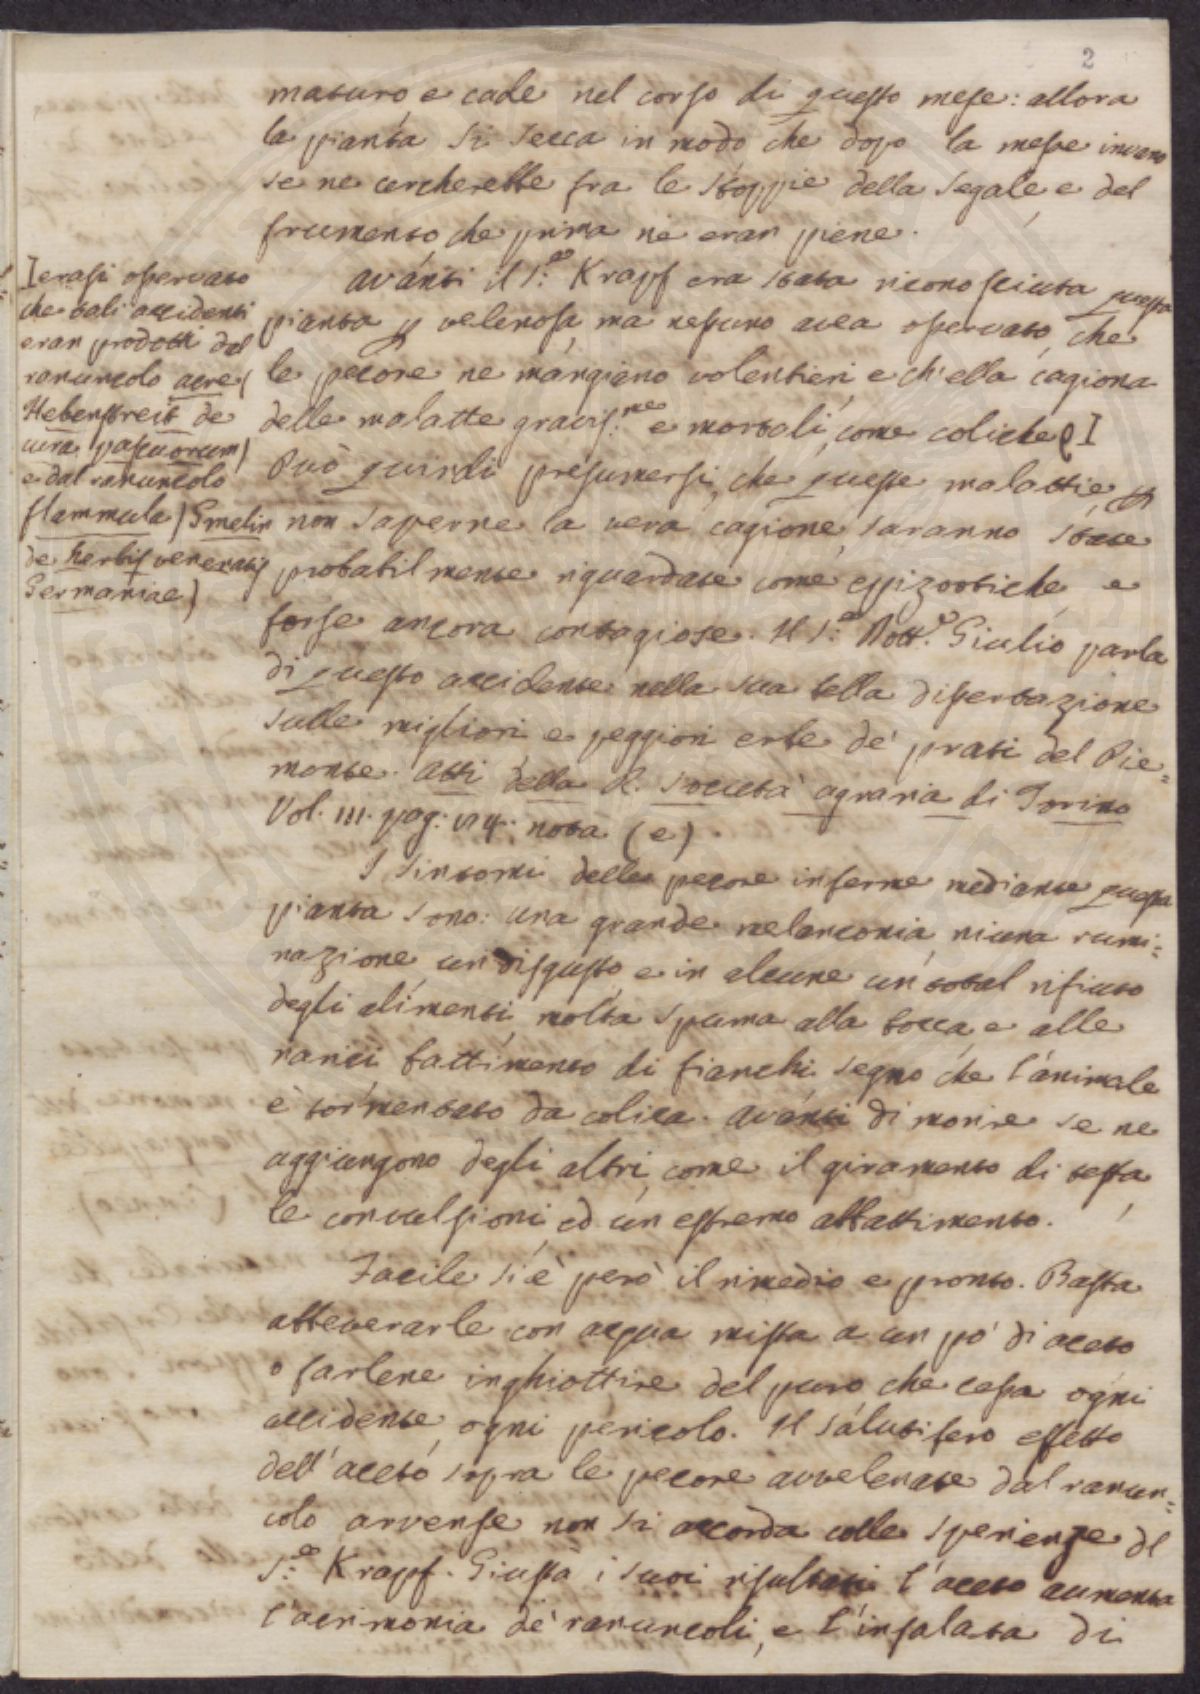 2
maturo e cade nel corso di questo mese: allora
la pianta si secca in modo che dopo la messe invano
se ne cercherebbe fra le stoppie della segale e del
frumento, che prima ne eran piene.
avanti il S.r Krapf era stata riconosciuta questa
pianta p velenosa, ma nessuno avea osservato, che
le pecore ne mangiano volentieri, e ch'ella cagiona
delle malatte graviss.me e mortali, come coliche I
Può quindi presumersi, che queste malattie, p
non saperne la vera cagione, saranno state
probabilmente riguardate come epizootiche, e
forse ancora contagiose. Il S.r Dott.r Giulio parla
di questo accidente nella sua bella dissertazione
sulle migliori e peggiori erbe de' prati del Pie=
monte. Atti della R. Società agraria di Torino
Vol. III. pag: nota (e).
I sintomi delle pecore inferme mediante questa
pianta sono: una grande melanconia niuna rumi=
nazione un disgusto, e in alcune un total rifiuto
degli alimenti, molta spuma alla bocca, e alle
narici battimento di fianchi segno che l'animale
è tormentato da colica. avanti di morire se ne
aggiungono degli altri, come il giramento di testa,
le convulsioni, ed un estremo abbattimento.
Facile si è però il rimedio e pronto. Basta
abbeverarle con acqua mista a un po' di aceto
o farlene inghiottire del puro che cessa ogni
accidente, ogni pericolo. Il salutifero effetto
dell'aceto sopra le pecore avvelenate dal ranun=
colo arvense non si accorda colle sperienze del
S.r Krapf. Giusta i suoi risultati l'aceto aumenta
l'acrimonia de' ranuncoli, e l'insalata di
I erasi osservato
che tali accidenti
eran prodotti dal
ranuncolo acre (
Hebenstreit de
cura pascuorum)
e dal ranuncolo
flammula) Gmelin
de herbis venenatis
Germaniae)